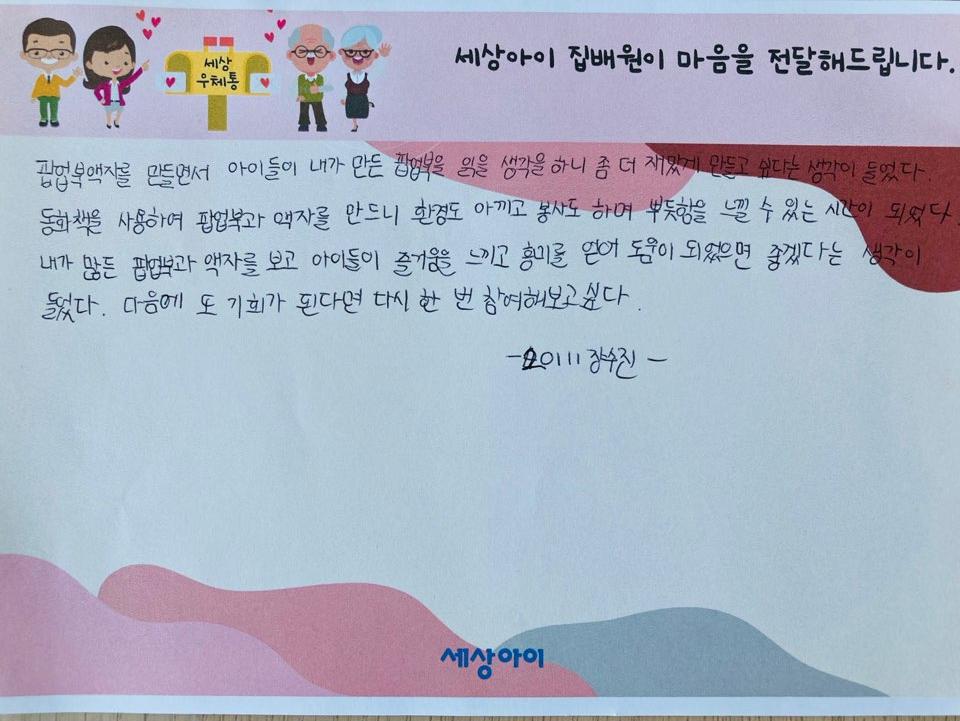 세상
우체통
세상아이 집배원이 마음을 전달해드립니다.
팝업북액자를 만들면서 아이들이 내가 만든 팝업북을 읽을 생각을 하니 좀 더 재밌게 만들고 싶다는 생각이 들었다.
동화책을 사용하여 팝업북과 액자를 만드니 환경도 아끼고 봉사도 하며 뿌듯함을 느낄 수 있는 시간이 되었다.
내가 만든 팝업북과 액자를 보고 아이들이 즐거움을 느끼고 흥미를 얻어 도움이 되었으면 좋겠다는 생각이
들었다. 다음에 또 기회가 된다면 다시 한 번 참여해보고싶다.
- 20111 장수진 -
세상아이